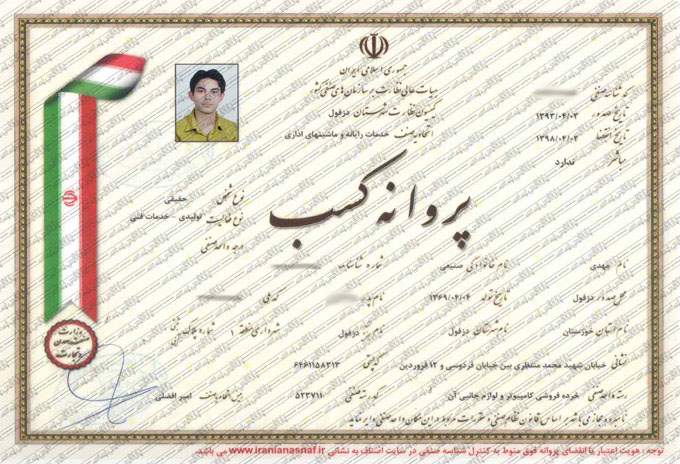 جمهوری اسلامی ایران
هیات عالی نظارت بر سازمان های صنفی کشور
کمیسیون نظارت شهرستان دزفول
اتحادیه صنف خدمات رایانه و ماشینهای اداری
شناسه صنفی
تاریخ صدور ۱۳۹۳/۰۴/۰۳
تاریخ انقضا ۱۳۹۸/۰۴/۰۲
مباشر ندارد
پروانه کسب
نوع شخص حقیقی
نوع فعالیت تولیدی - خدمات فنی
درجه واحد صنفی
نام مهدی نام خانوادگی صنیعی شماره شناسنامه
محل صدور دزفول تاریخ تولد ۱۳۶۹/۰۴/۰۴ نام پدر کد ملی
نام استان خوزستان نام شهرستان دزفول نام شهر دزفول شهرداری منطقه ۱ شماره پلاک ثبتی
نشانی خیابان شهید محمد منتظری بین خیابان فردوسی و ۱۲ فروردین کد پستی ۶۴۶۱۱۵۸۳۱۳
رسته واحد صنفی خرده فروشی کامپیوتر و لوازم جانبی آن کد رسته صنفی ۵۲۳۷۱۱ رییس اتحادیه صنف امیر افضلی
نامبرده مجاز می باشد بر اساس قانون نظام صنفی و مقررات مربوط در این مکان واحد صنفی دایر نماید
وزارت
صنعت، معدن
و تجارت
توجه : هویت اعتبار یا انقضای پروانه فوق منوط به کنترل شناسه صنفی در سایت اصناف به نشانی www.iranianasnaf.ir می باشد.